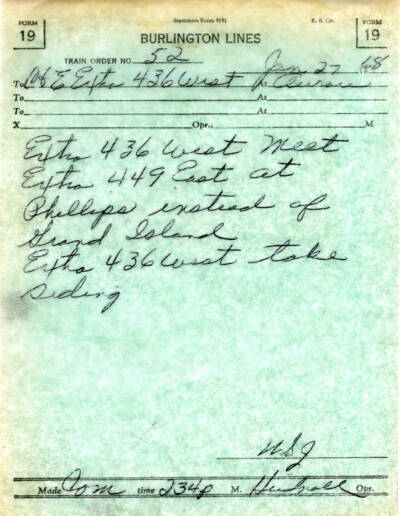 FORM 19
Standard Form 4191
FORM 19
BURLINGTON LINES
TRAIN ORDER NO. 52 Jan 27 1968
To C&E Extra 436 West At Aurora
To At
To At
X Opr.; M
Extra 436 West Meet
Extra 449 East at
Phillips instead of
Grand Island
Extra 436 West take
siding
Made Com time 234p M. Opr.